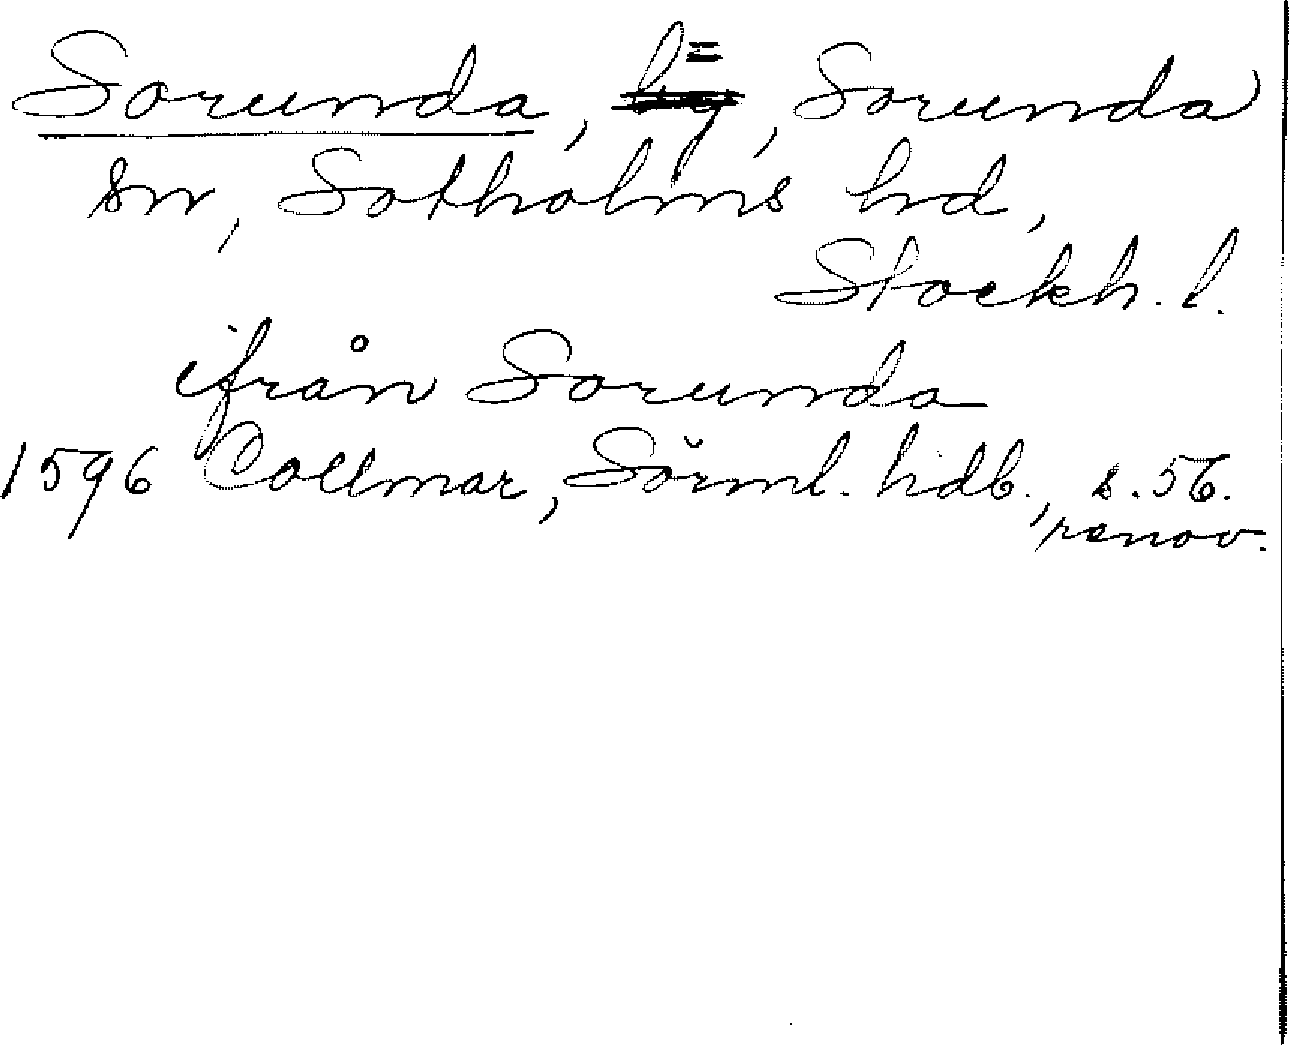 Sorunda, by =, Sorunda
sn, Sotholms hd,
Stockh. l.
ifrån Sorunda
1596 Collmar, Sörml. hdb., s. 56.
renov.